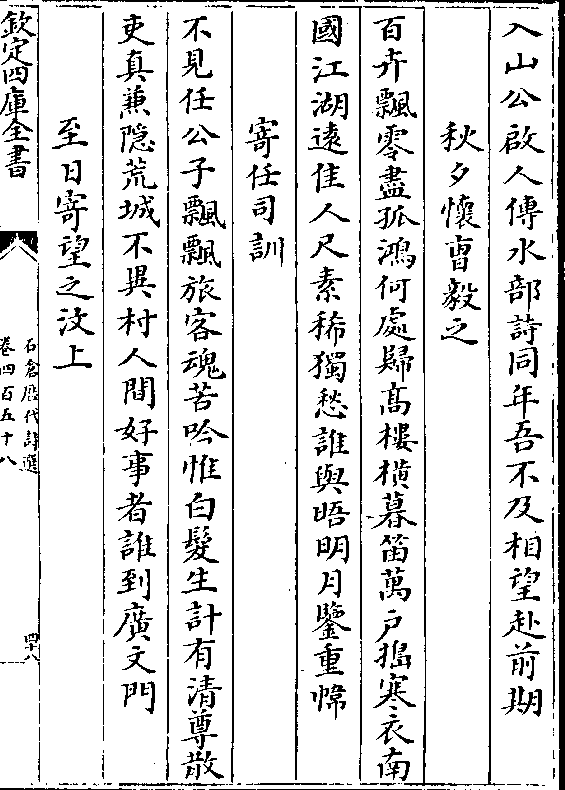 入山公啟人傳水部詩同年吾不及相望赴前期
秋夕懷曺毅之
百卉飄零盡孤鴻何處歸髙樓横暮笛萬戸搗寒衣南
國江湖遠佳人尺素稀獨愁誰與晤明月鑒重幃
寄任司訓
不見任公子飄飄旅客魂苦吟惟白髮生計有清尊散
吏真兼隐荒城不異村人間好事者誰到廣文門
至日寄望之汶上
欽定四庫全書
石倉歴代詩選
卷四百五十八
四十八